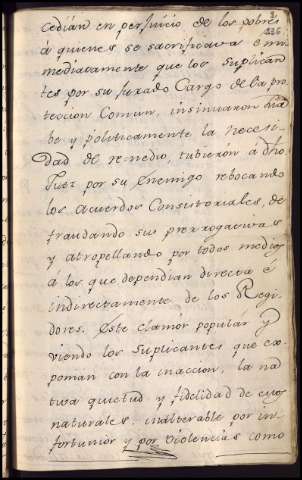 cedian en perjuicio de los pobres
á quienes se sacrificava é in
mediatamente que los Suplican
tes por su jurado Cargo de la pro
teccion Comun, insinuaron
be y politicamente la necesi
dad de remedio, tubieron a dho
Juez por su Enemigo rebocando
los Acuerdos Consistoriales, de
fraudando sus prerrogativas
y atropellando por todos medios
á los que dependian directa é
indirectamente de los Regi
dores. Este clamor popular y
viendo los Suplicantes que ex
ponian con la inaccion, la na
tiva quietud y fidelidad de esos
naturales, inalterable por in
fortunios y por violencias como